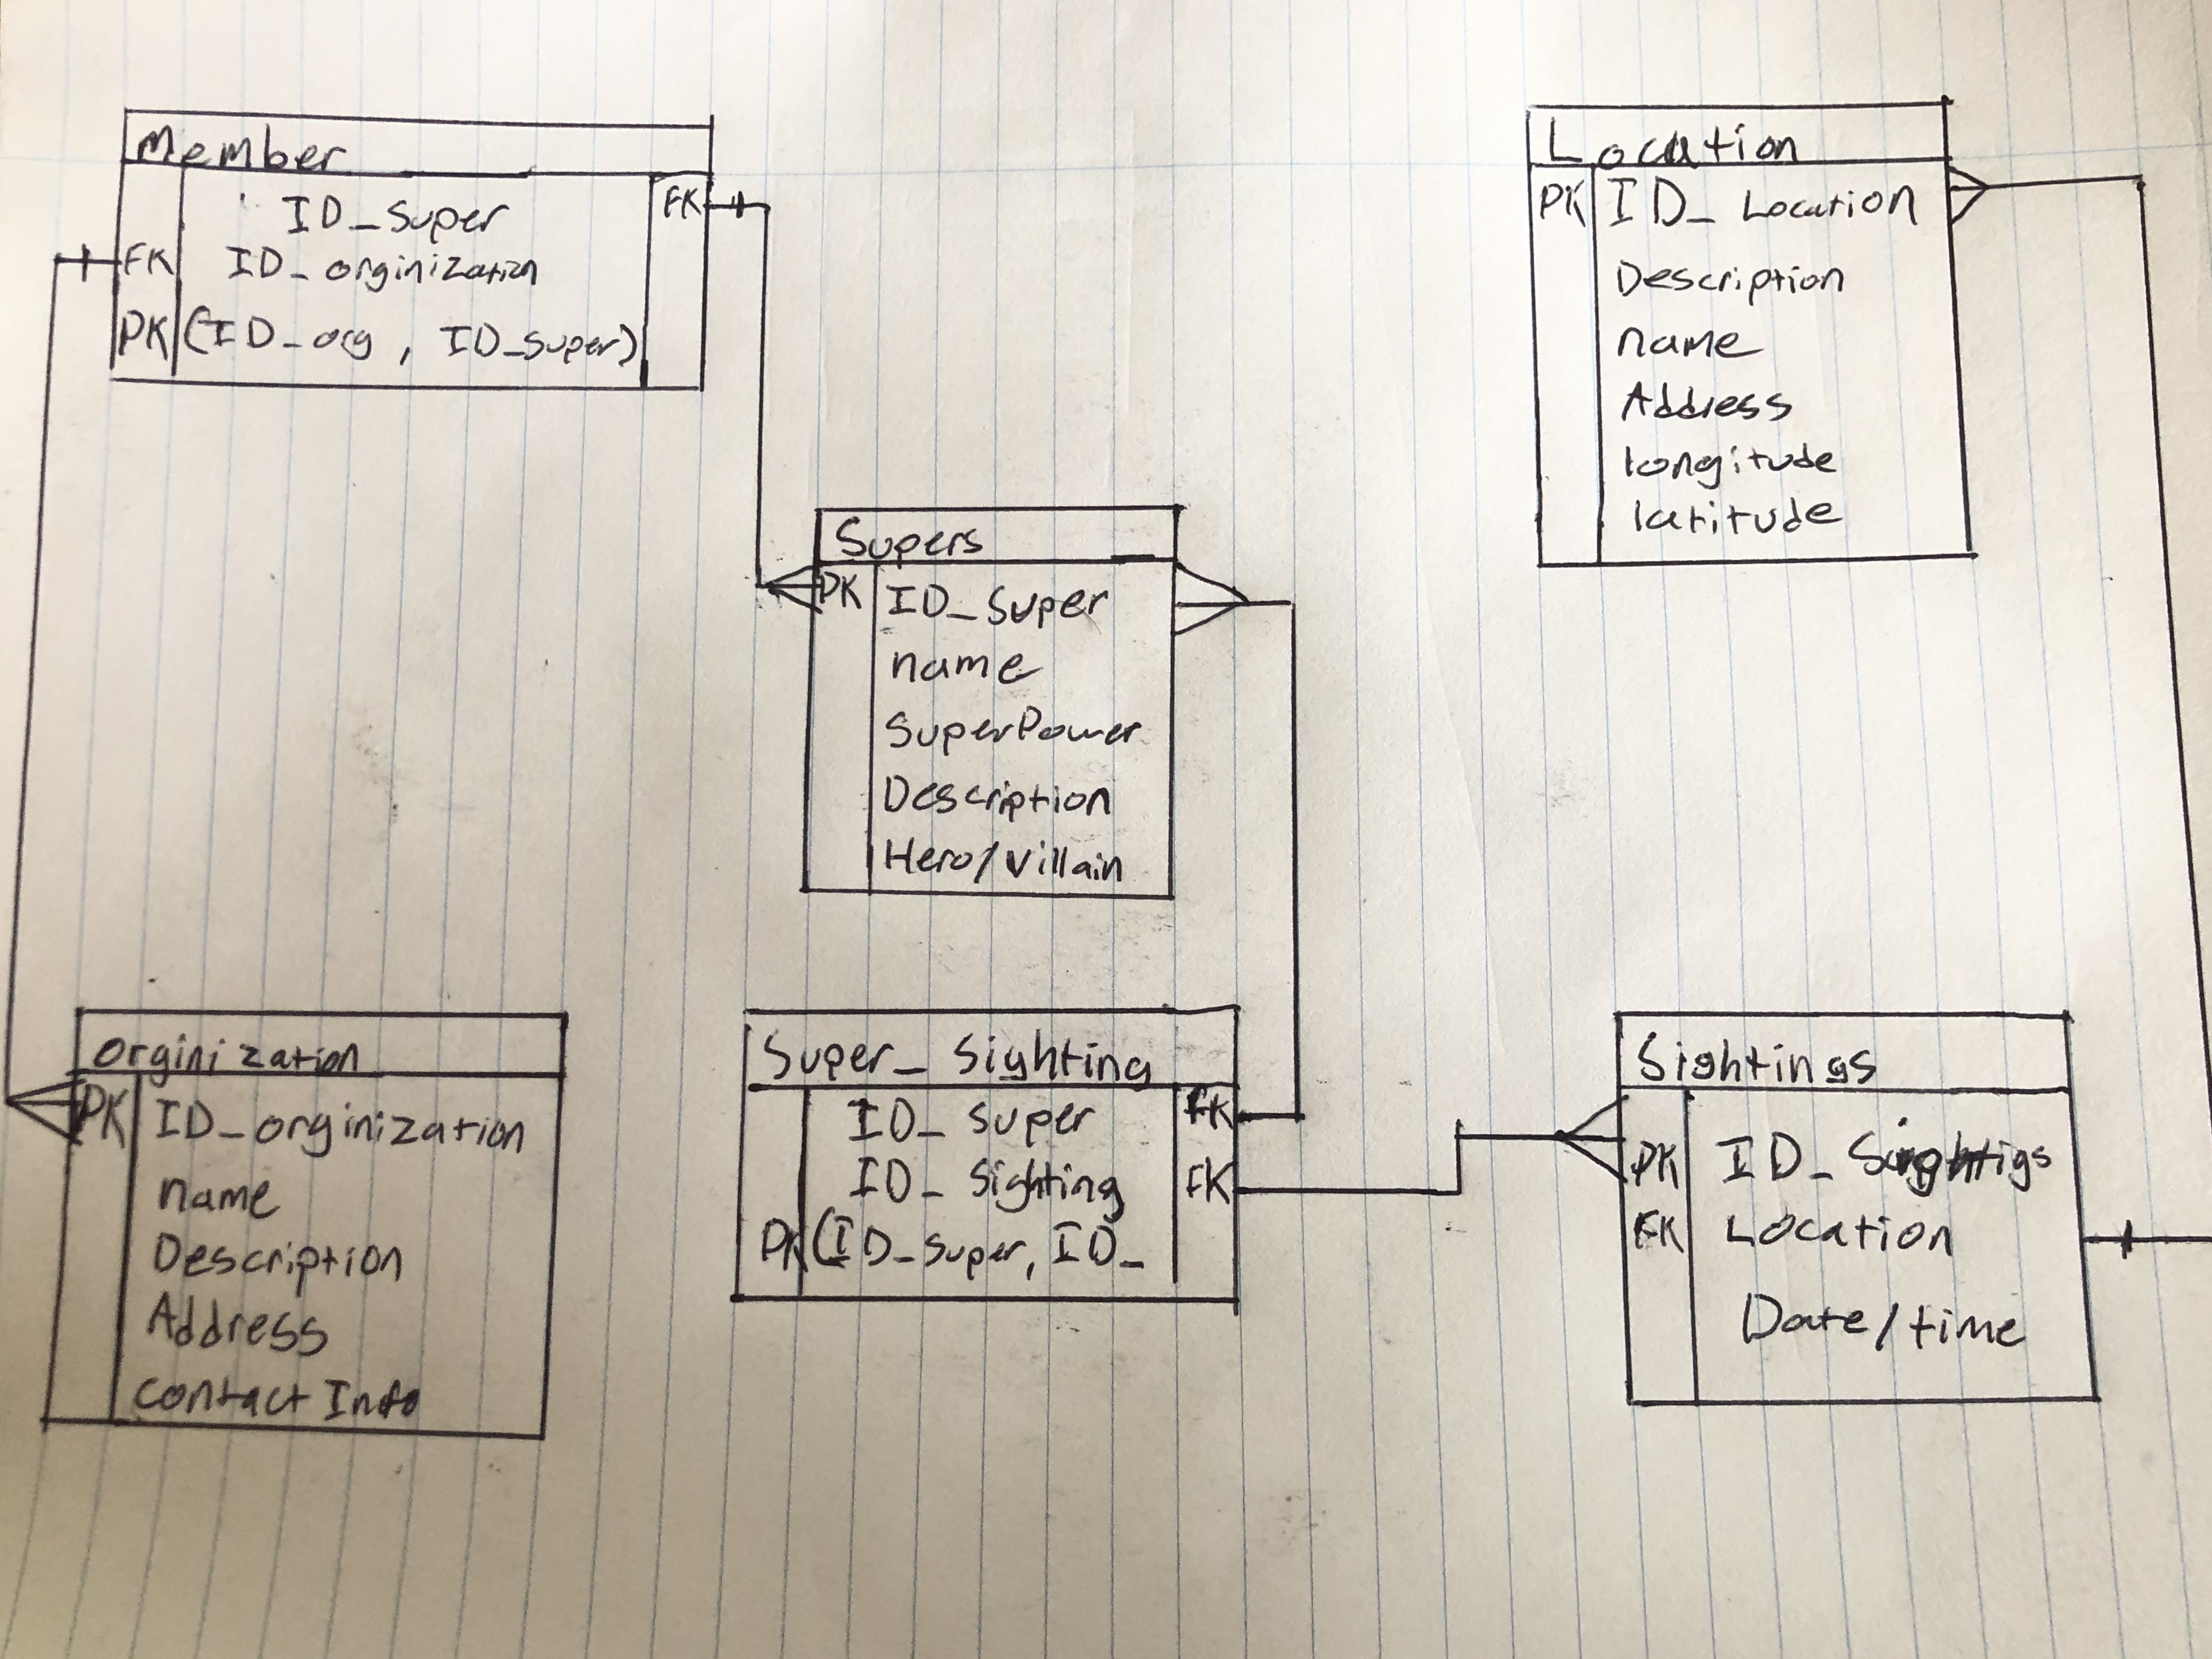 Member
ID_Super FK
FK ID_orginization
PK (ID_org, ID_super)
Location
PK ID_Location
Description
name
Address
longitude
latitude
Supers
PK ID_Super
name
SuperPower
Description
Hero/Villain
orginization
PK ID_orginization
name
Description
Address
contact Info
Super_Sighting
ID_Super FK
ID_Sighting FK
PK (ID_super, ID_
Sightings
PK ID_
FK Location
Date/time